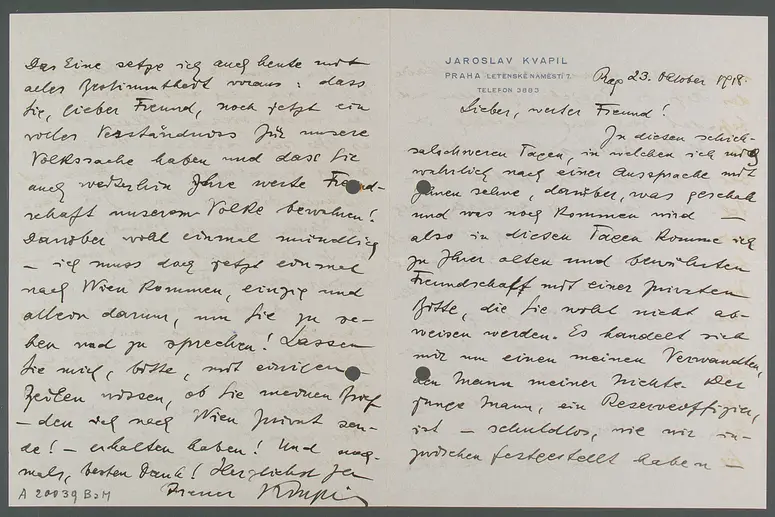 JAROSLAV KVAPIL
PRAHA LETENSKÉ NÁMĚSTÍ 7.
TELEFON 3883
Prag 23. Oktober 1918.
Lieber, werter Freund!
In diesen schick-
salschweren Tagen, in welchen ich mich
wahrlich nach einer Aussprache mit
Ihnen sehne, darüber, was geschah
und was noch kommen wird —
also in diesen Tagen komme ich
zu Ihrer alten und bewährten
Freundschaft mit einer privaten
Bitte, die Sie wohl nicht ab-
weisen werden. Es handelt sich
mir um einen meinen Verwandten,
den Mann meiner Nichte. Der
junge Mann, ein Reserveoffizier,
ist — schuldlos, wie wir in-
zwischen festgestellt haben —
Das Eine setze ich auch heute mit
aller Bestimmtheit voraus: dass
Sie, lieber Freund, noch jetzt ein
volles Verständniss für unsere
Volkssache haben und dass Sie
auch weiterhin Ihre werte Freund-
schaft unserem Volke bewahren!
Darüber wohl einmal mündlich
— ich muss doch jetzt einmal
nach Wien kommen, einzig und
allein darum, um Sie zu se-
hen und zu sprechen! Lassen
Sie mich, bitte, mit einigen
Zeilen wissen, ob Sie meinen Brief
— den ich nach Wien privat sen-
de! — erhalten haben! Und noch-
mals, besten Dank! Herzlichst Ihr
Kvapil
A 20039 BaM